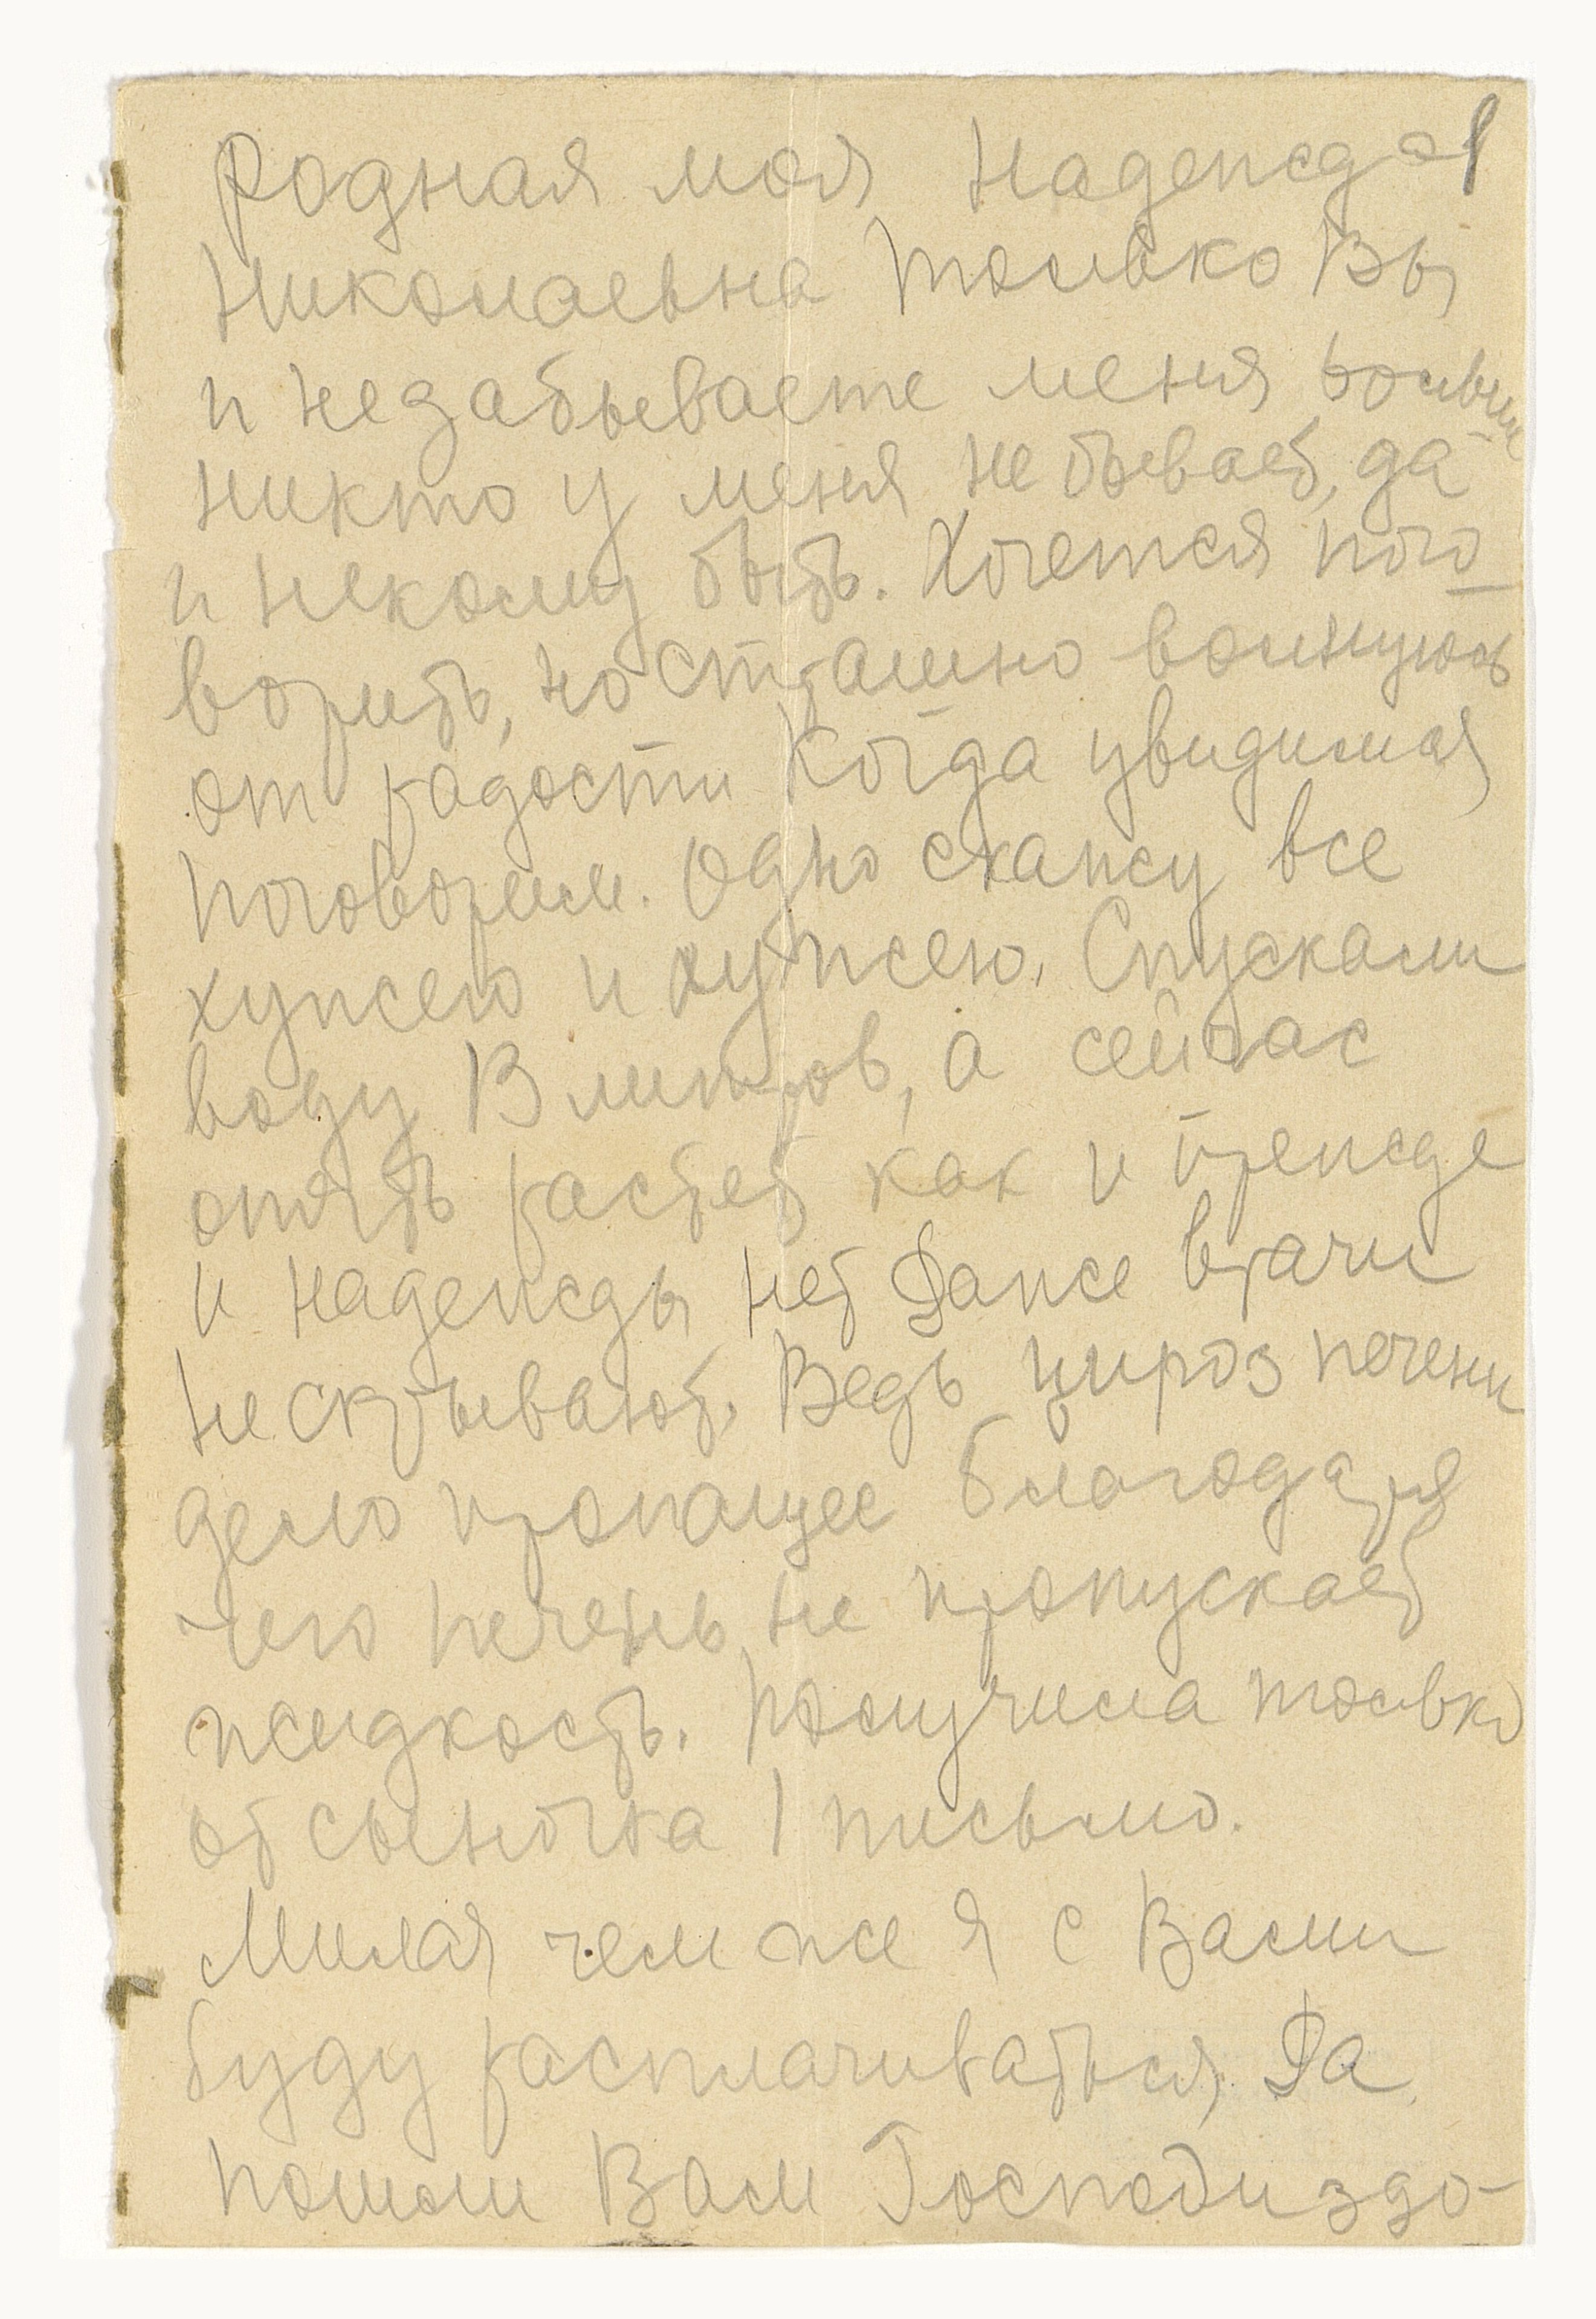 Родная моя Надежда
Николаевна только Вы
и незабываете меня больше
никто у меня не бывает, да
и некому быть. Хочется пого-
ворить, но страшно волнуюсь
от радости Когда увидимся
поговорим. Одно скажу все
хужею и хужею. Спускали
воду 13 литров, а сейчас
опять растет как и прежде
и надежды нет Даже врачи
не скрывают. Ведь цироз печени
дело пропащее благодаря
чего печень не пропускает
жидкость. Получила только
от сыночка 1 письмо.
Милая чем же я с Вами
буду расплачиваться, Да
пошли Вам Господи здо-